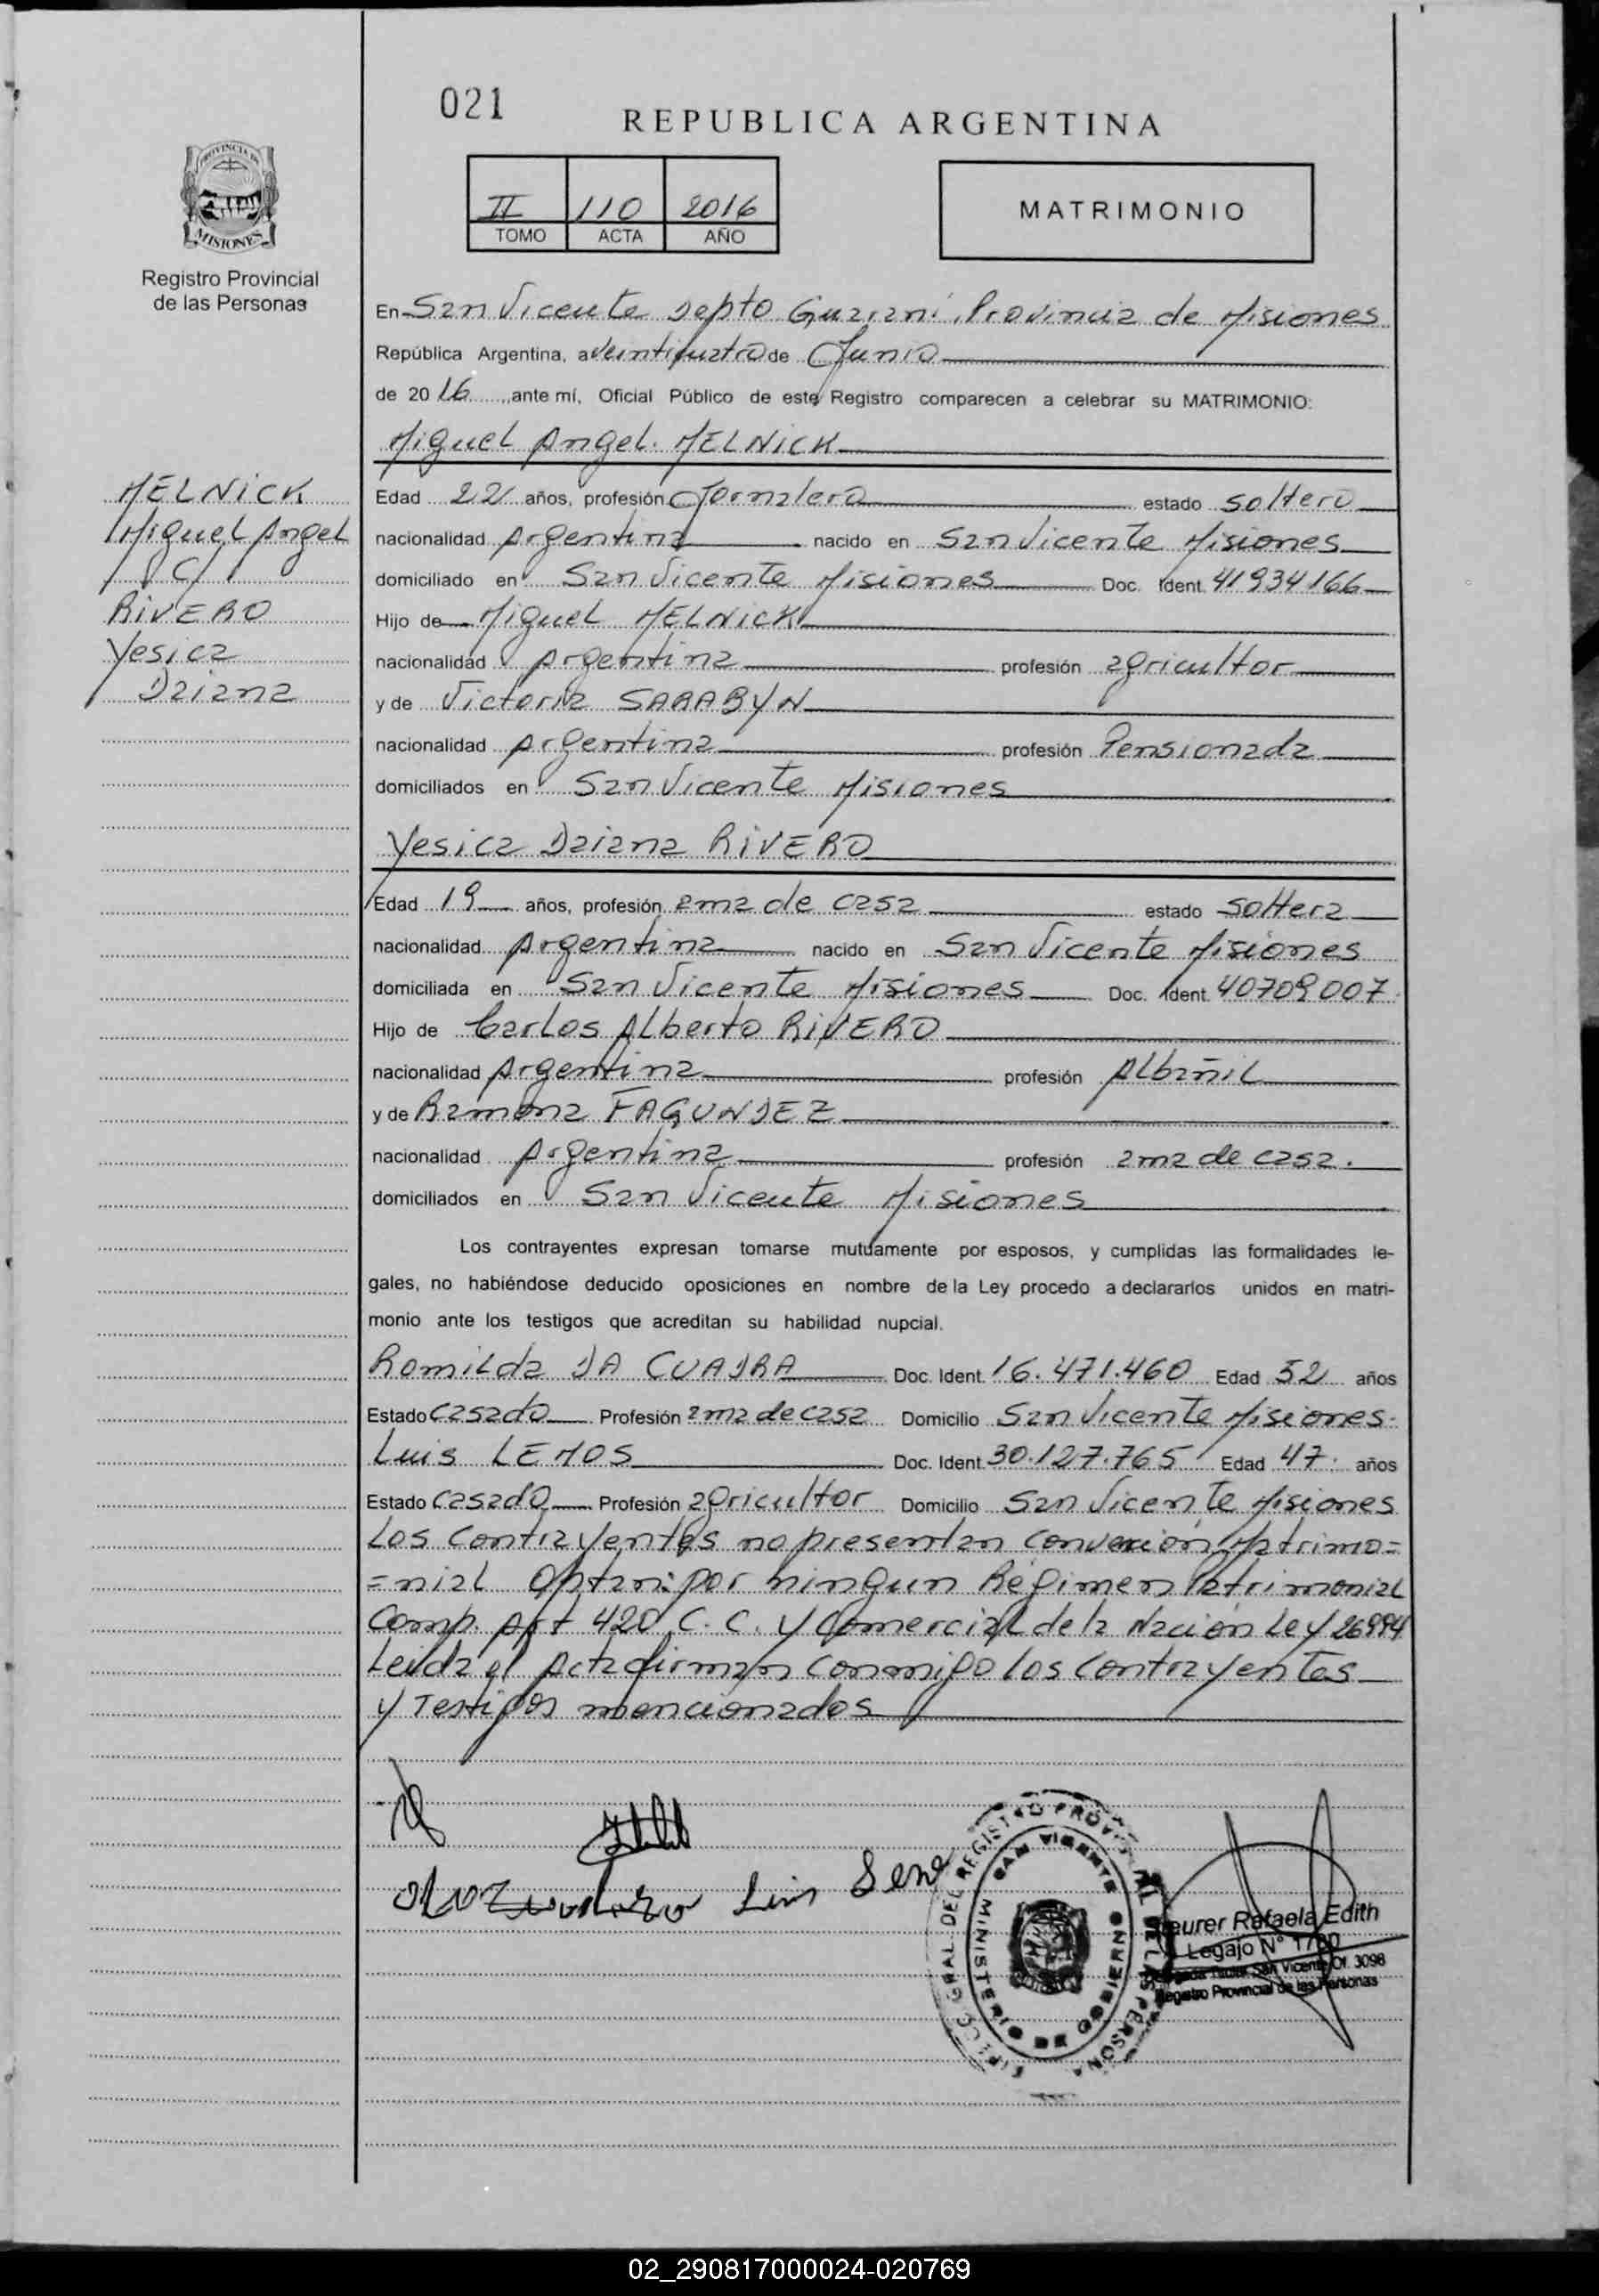 021
REPUBLICA ARGENTINA
PROVINCIA DE
MISIONES
Registro Provincial
de las Personas
II 110 2016
TOMO ACTA AÑO
MATRIMONIO
En San Vicente Depto Guarani, Provincia de Misiones
República Argentina, a veinticuatro de Junio
de 2016 ante mí, Oficial Público de este Registro comparecen a celebrar su MATRIMONIO:
Miguel Angel MELNICK
MELNICK
Miguel Angel
C/
RIVERO
Yesica
Daiana
Edad 22 años, profesión Jornalero estado soltero
nacionalidad Argentina nacido en San Vicente Misiones
domiciliado en San Vicente Misiones Doc. Ident. 41934166
Hijo de Miguel MELNICK
nacionalidad Argentina profesión agricultor
y de Victoria SARABYN
nacionalidad Argentina profesión Pensionada
domiciliados en San Vicente Misiones
Yesica Daiana RIVERO
Edad 19 años, profesión ama de casa estado soltera
nacionalidad Argentina nacido en San Vicente Misiones
domiciliada en San Vicente Misiones Doc. Ident. 40709007
Hijo de Carlos Alberto RIVERO
nacionalidad Argentina profesión Albañil
y de Ramona FAGUNDEZ
nacionalidad Argentina profesión ama de casa.
domiciliados en San Vicente Misiones
Los contrayentes expresan tomarse mutuamente por esposos, y cumplidas las formalidades le-
gales, no habiéndose deducido oposiciones en nombre de la Ley procedo a declararlos unidos en matri-
monio ante los testigos que acreditan su habilidad nupcial.
Romilda DA CUADRA Doc. Ident. 16.471.460 Edad 52 años
Estado casado Profesión ama de casa Domicilio San Vicente Misiones.
Luis LEMOS Doc. Ident. 30.127.765 Edad 47. años
Estado casado Profesión agricultor Domicilio San Vicente Misiones
Los contrayentes no presentan convención Matrimo=
=nial Optan: por ningun Régimen Patrimonial
Comp. Art 420 C. C. y Comercial de la Nación Ley 26994
Leida el Acta firman conmigo los contrayentes
y Testigos mencionados
Luis
SAN VICENTE
MINISTERIO DE GOBIERNO
GRAL. DEL REGISTRO PROVINCIAL DE LAS PERSONAS
Rafaela Edith
Legajo N°
San Vicente Of. 3098
Registro Provincial de las Personas
02_290817000024-020769